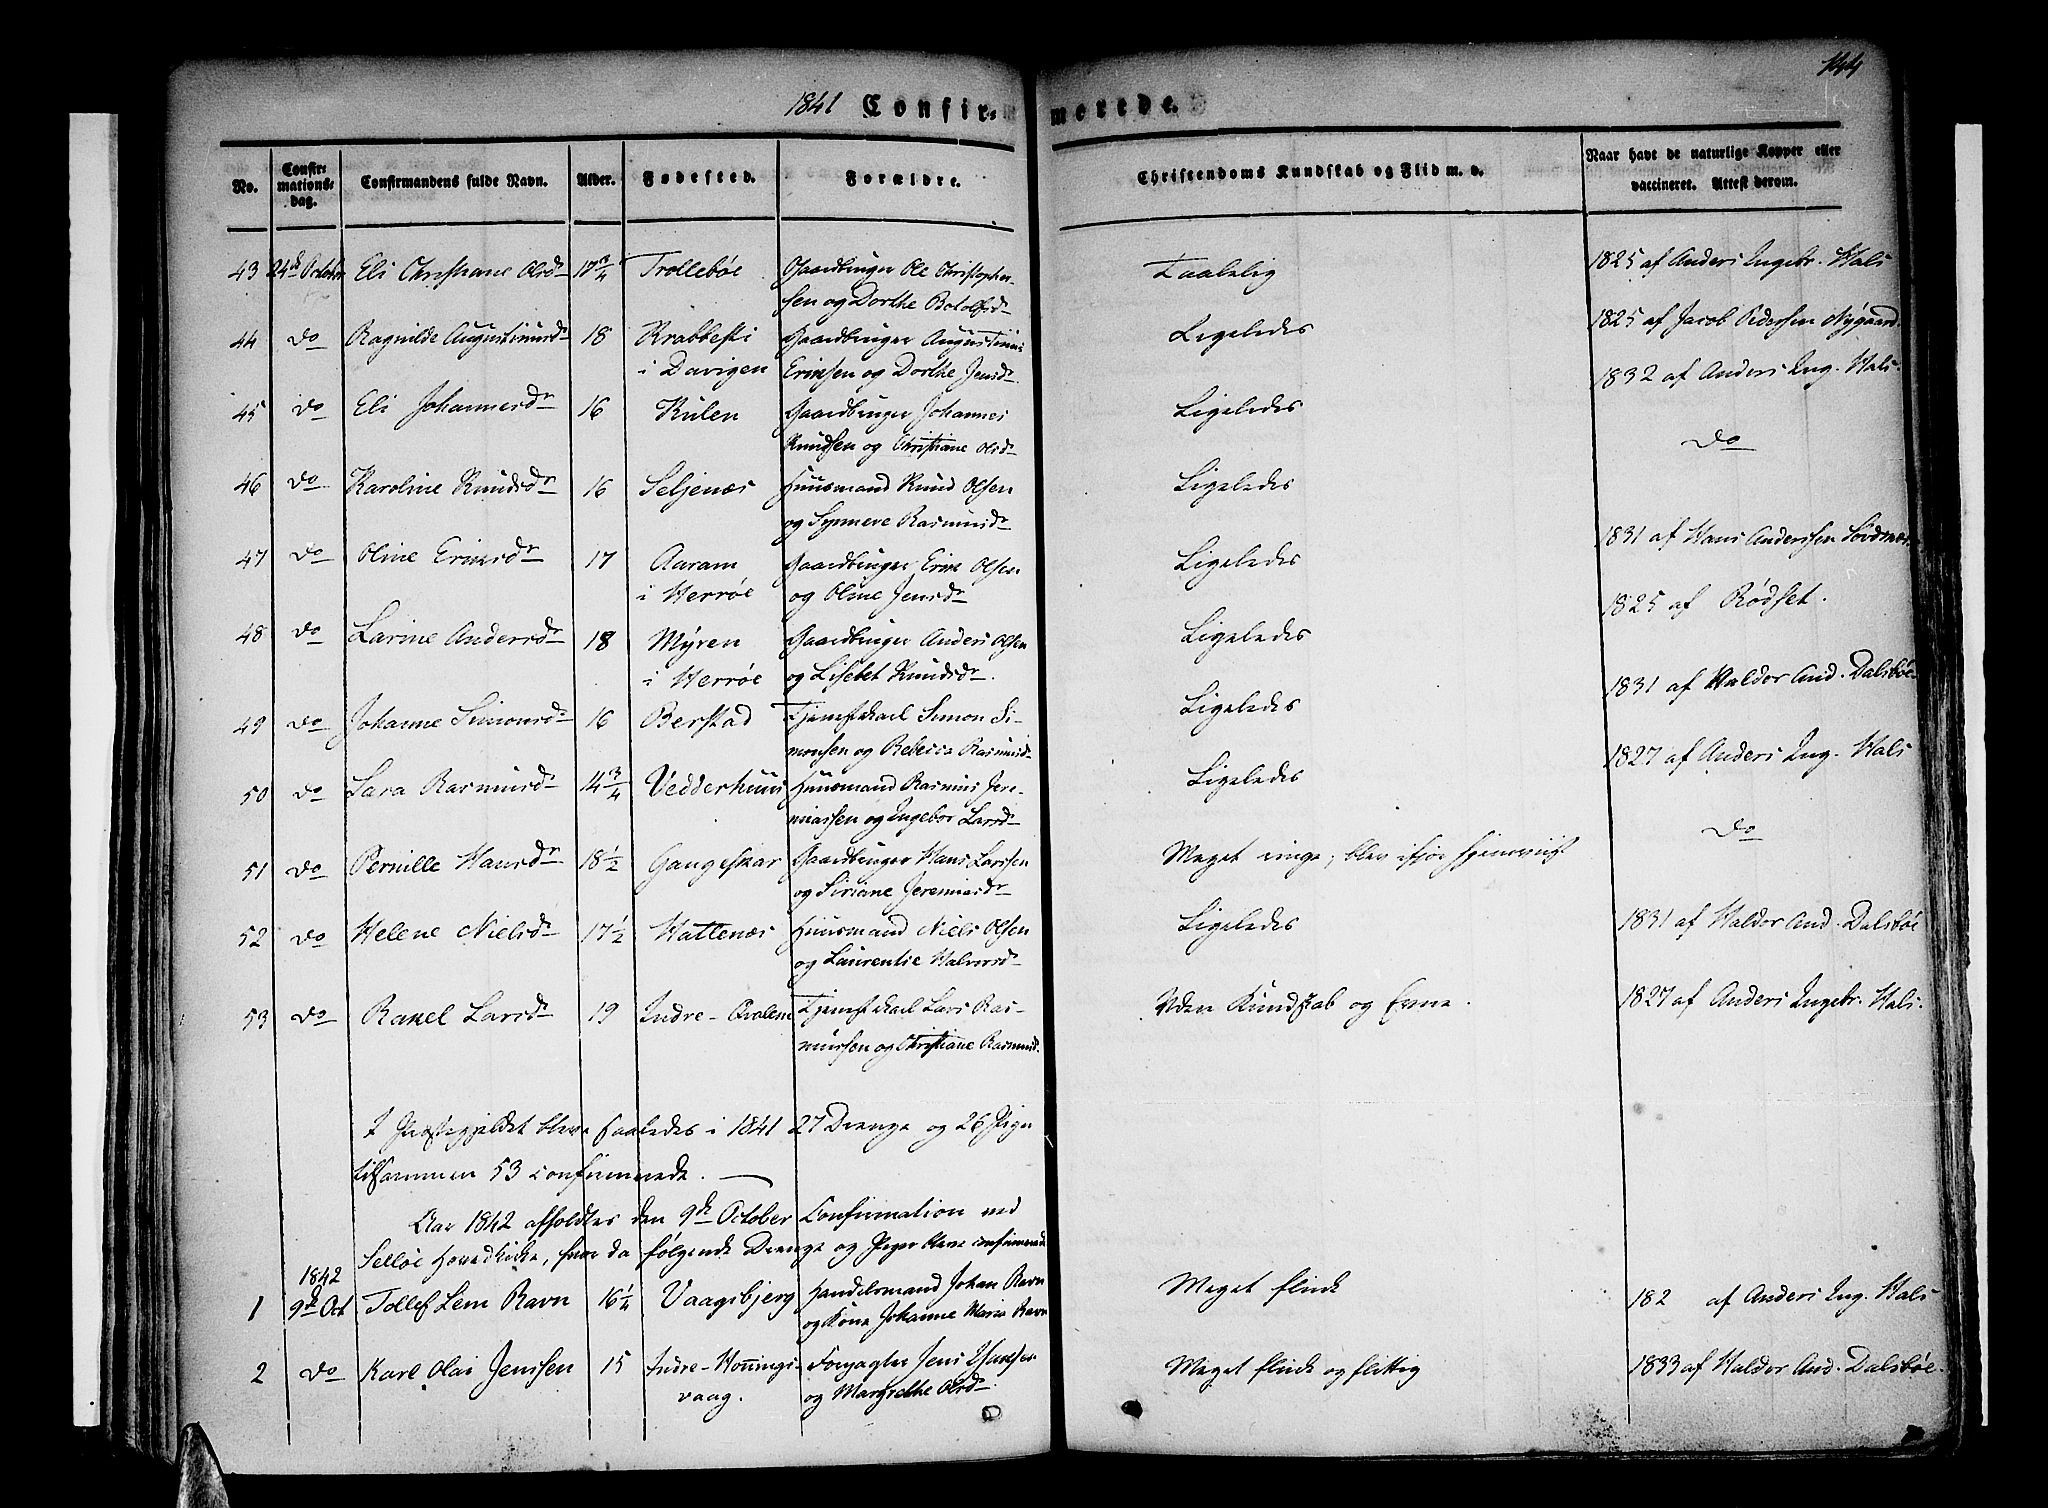 144
1841 Confir- merede.
No.
Confir-
mations-
dag.
Confirmandens fulde Navn.
Alder.
Fødested.
Forældre.
Christendoms Kundskab og Flid m. v.
Naar havt de naturlige Kopper eller
vaccineret. Attest derom.
43 24de October Eli Christiane Olsdr 17 3/4 Trollebøe Gaardbruger Ole Christophersen og Dorthe Botolfsdr Taalelig 1825 af Anders Ingebr. Hals
44 do Ragnilde Augustinusdr 18 Krabbesti i Davigen Gaardbruger Augustinus Ericksen og Dorthe Jensdr Ligeledes 1825 af Jacob Pedersen Nygaard
45 do Eli Johannesdr 16 Kulen Gaardbruger Johannes Knudsen og Christiane Olsdr Ligeledes 1832 af Anders Ing. Hals
46 do Karoline Knudsdr 16 Seljenæs Huusmand Knud Olsen og Synneve Rasmusdr Ligeledes do
47 do Oline Ericksdr 17 Aaram i Herrøe Gaardbruger Erick Olsen og Oline Jensdr Ligeledes 1831 af Hans Anderssen
48 do Larine Andersdr 18 Myren i Herrøe Gaardbruger Anders Olsen og Lisebet Knudsdr. Ligeledes 1825 af Rødset.
49 do Johanne Simonsdr 16 Berstad Tjenestekarl Simon Simonsen og Rebecca Rasmusdr Ligeledes 1831 af Haldor And. Dalsbøe
50 do Lara Rasmusdr 14 3/4 Vedderhuus Huusmand Rasmus Jeremiassen og Ingebor Larsdr Ligeledes 1827 af Anders Ing. Hals
51 do Pernille Hansdr 18 1/2 Gangeskar Gaardbruger Hans Larssen og Siriane Jeremiasdr Meget ringe; blev ifjor do
52 do Helene Nielsdr 17 1/2 Hattenæs Huusmand Niels Olsen og Laurentie Halvorsdr Ligeledes 1831 af Haldor And. Dalsbøe
53 do Rakel Larsdr 19 Indre-Qvalene Tjenestekarl Lars Rasmussen og Christiane Rasmusdr. Uden Kundskab og Evne. 1827 af Anders Ingebr. Hals.
I Præstegjeldet bleve saaledes i 1841 27 Drenge og 26 Piger
tilsammen 53 confirmerede.
Aar 1842 afholdtes den 9de October Confirmation ved
Selløe Hovedkirke, hvor da følgende Drenge og Piger bleve confirmerede
1842
1 9de Oct Tollef Lem Ravn 16 1/4 Vaagsbjerg Handelsmand Johan Ravn og Kone Johanne Maria Ravn Meget flink 182 af Anders Ing. Hals
2 do Karl Olai Jenssen 15 Indre-Honningsvaag. Forpagter Jens og Margrethe Olsdr. Meget flink og flittig 1833 af Haldor And. Dalsbøe.